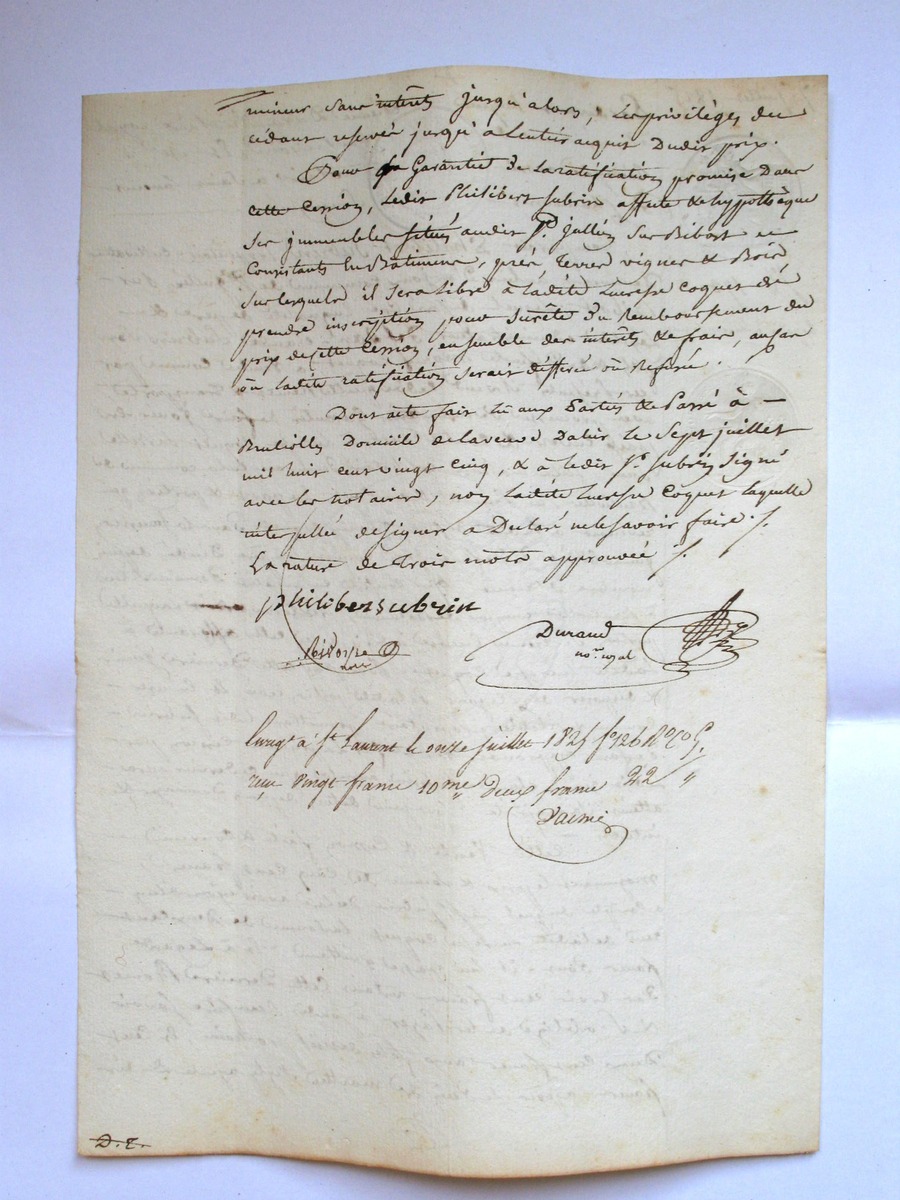 mineur sans intérêts jusqu'alors, les privilèges du
cédant réservé jusqu'à l'entier acquit dudit prix.
Pour la Garantie de la ratification promise dans
cette Cession, ledit Philibert Subrin affecte & hypothèque
ses immeubles situés audit St. Jullien sur Bibost et
Consistants En Batiment, prés Terres vignes & Bois
sur lesquels il sera libre à ladite Lucresse Coquet de
prendre inscription pour sureté du Remboursement du
prix de cette Cession, ensemble des intérêts & frais, au cas
où ladite ratification serait différée où Refusée.
Dont acte fait lû aux Parties & Passé à —
Domicile de la veuve Dalin le Sept juillet
mil huit cent vingt cinq, & à ledit Sr. Subrin Signé
avec les notaires, non ladite Lucresse Coquet laquelle
interpellée de signer a Déclaré ne le savoir faire ./.
La rature de Trois mots approuvée ./. /.
philibert subrin
Durand
nore. royal
Enregé à St Laurent le onze juillet 1825 fo 126
reçu vingt francs 10me deux francs 22 "
D. r.